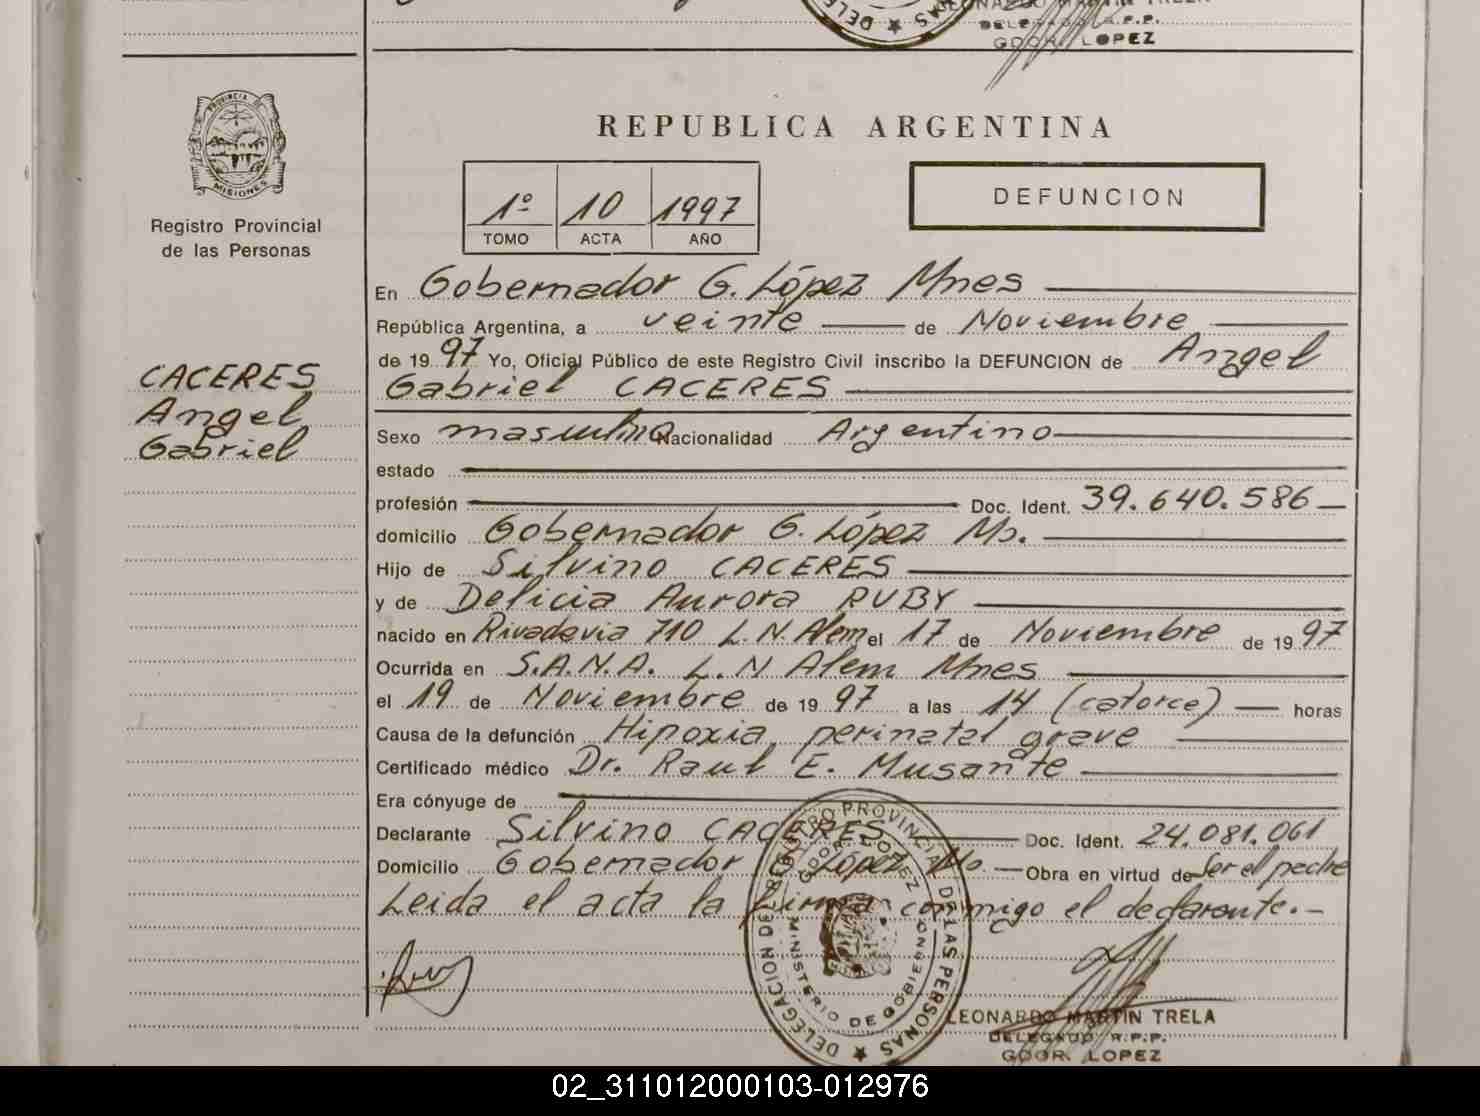 GDOR. LOPEZ
REPUBLICA ARGENTINA
PROVINCIA DE
MISIONES
Registro Provincial
de las Personas
1º 10 1997
TOMO ACTA AÑO
DEFUNCION
En Gobernador G. López Mnes
República Argentina, a veinte de Noviembre
de 1997 Yo, Oficial Público de este Registro Civil inscribo la DEFUNCION de Angel
Gabriel CACERES
CACERES
Angel
Gabriel
Sexo masculino Nacionalidad Argentino
estado
profesión Doc. Ident. 39.640.586
domicilio Gobernador G. López Ms.
Hijo de Silvino CACERES
y de Delicia Aurora RUBY
nacido en Rivadavia 710 L.N.Alem el 17 de Noviembre de 1997
Ocurrida en S.A.N.A. L.N Alem Mnes
el 19 de Noviembre de 1997 a las 14 (catorce) horas
Causa de la defunción Hipoxia perinatal grave
Certificado médico Dr. Raul E. Musante
Era cónyuge de
Declarante Silvino CACERES Doc. Ident. 24.081.061
Domicilio Gobernador G. López Mo. Obra en virtud de Ser el padre
Leida el acta la firma conmigo el declarante.-
DELEGACION DE REGISTRO PROVINCIAL DE LAS PERSONAS
GDOR. LOPEZ
MINISTERIO DE GOBIERNO
LEONARDO MARTIN TRELA
DELEGADO R.P.P.
GDOR. LOPEZ
02_311012000103-012976